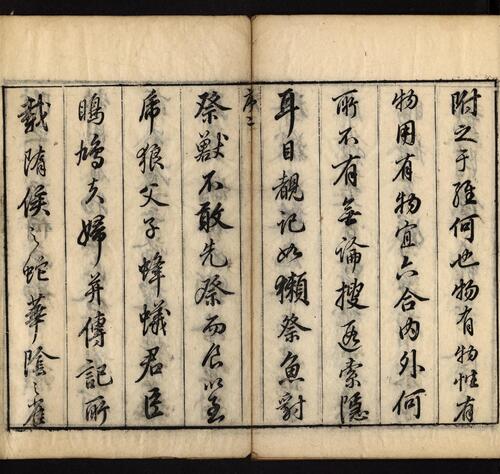 附之于經何也物有物性有
物用有物宜六合內外何
所不有無論搜遐索隱
耳目覩記如獺祭魚豺
序二
祭獸不敢先祭而食以至
虎狼父子蜂蟻君臣
鳲鳩夫婦并傳記所
載隋侯之蛇華陰之雀